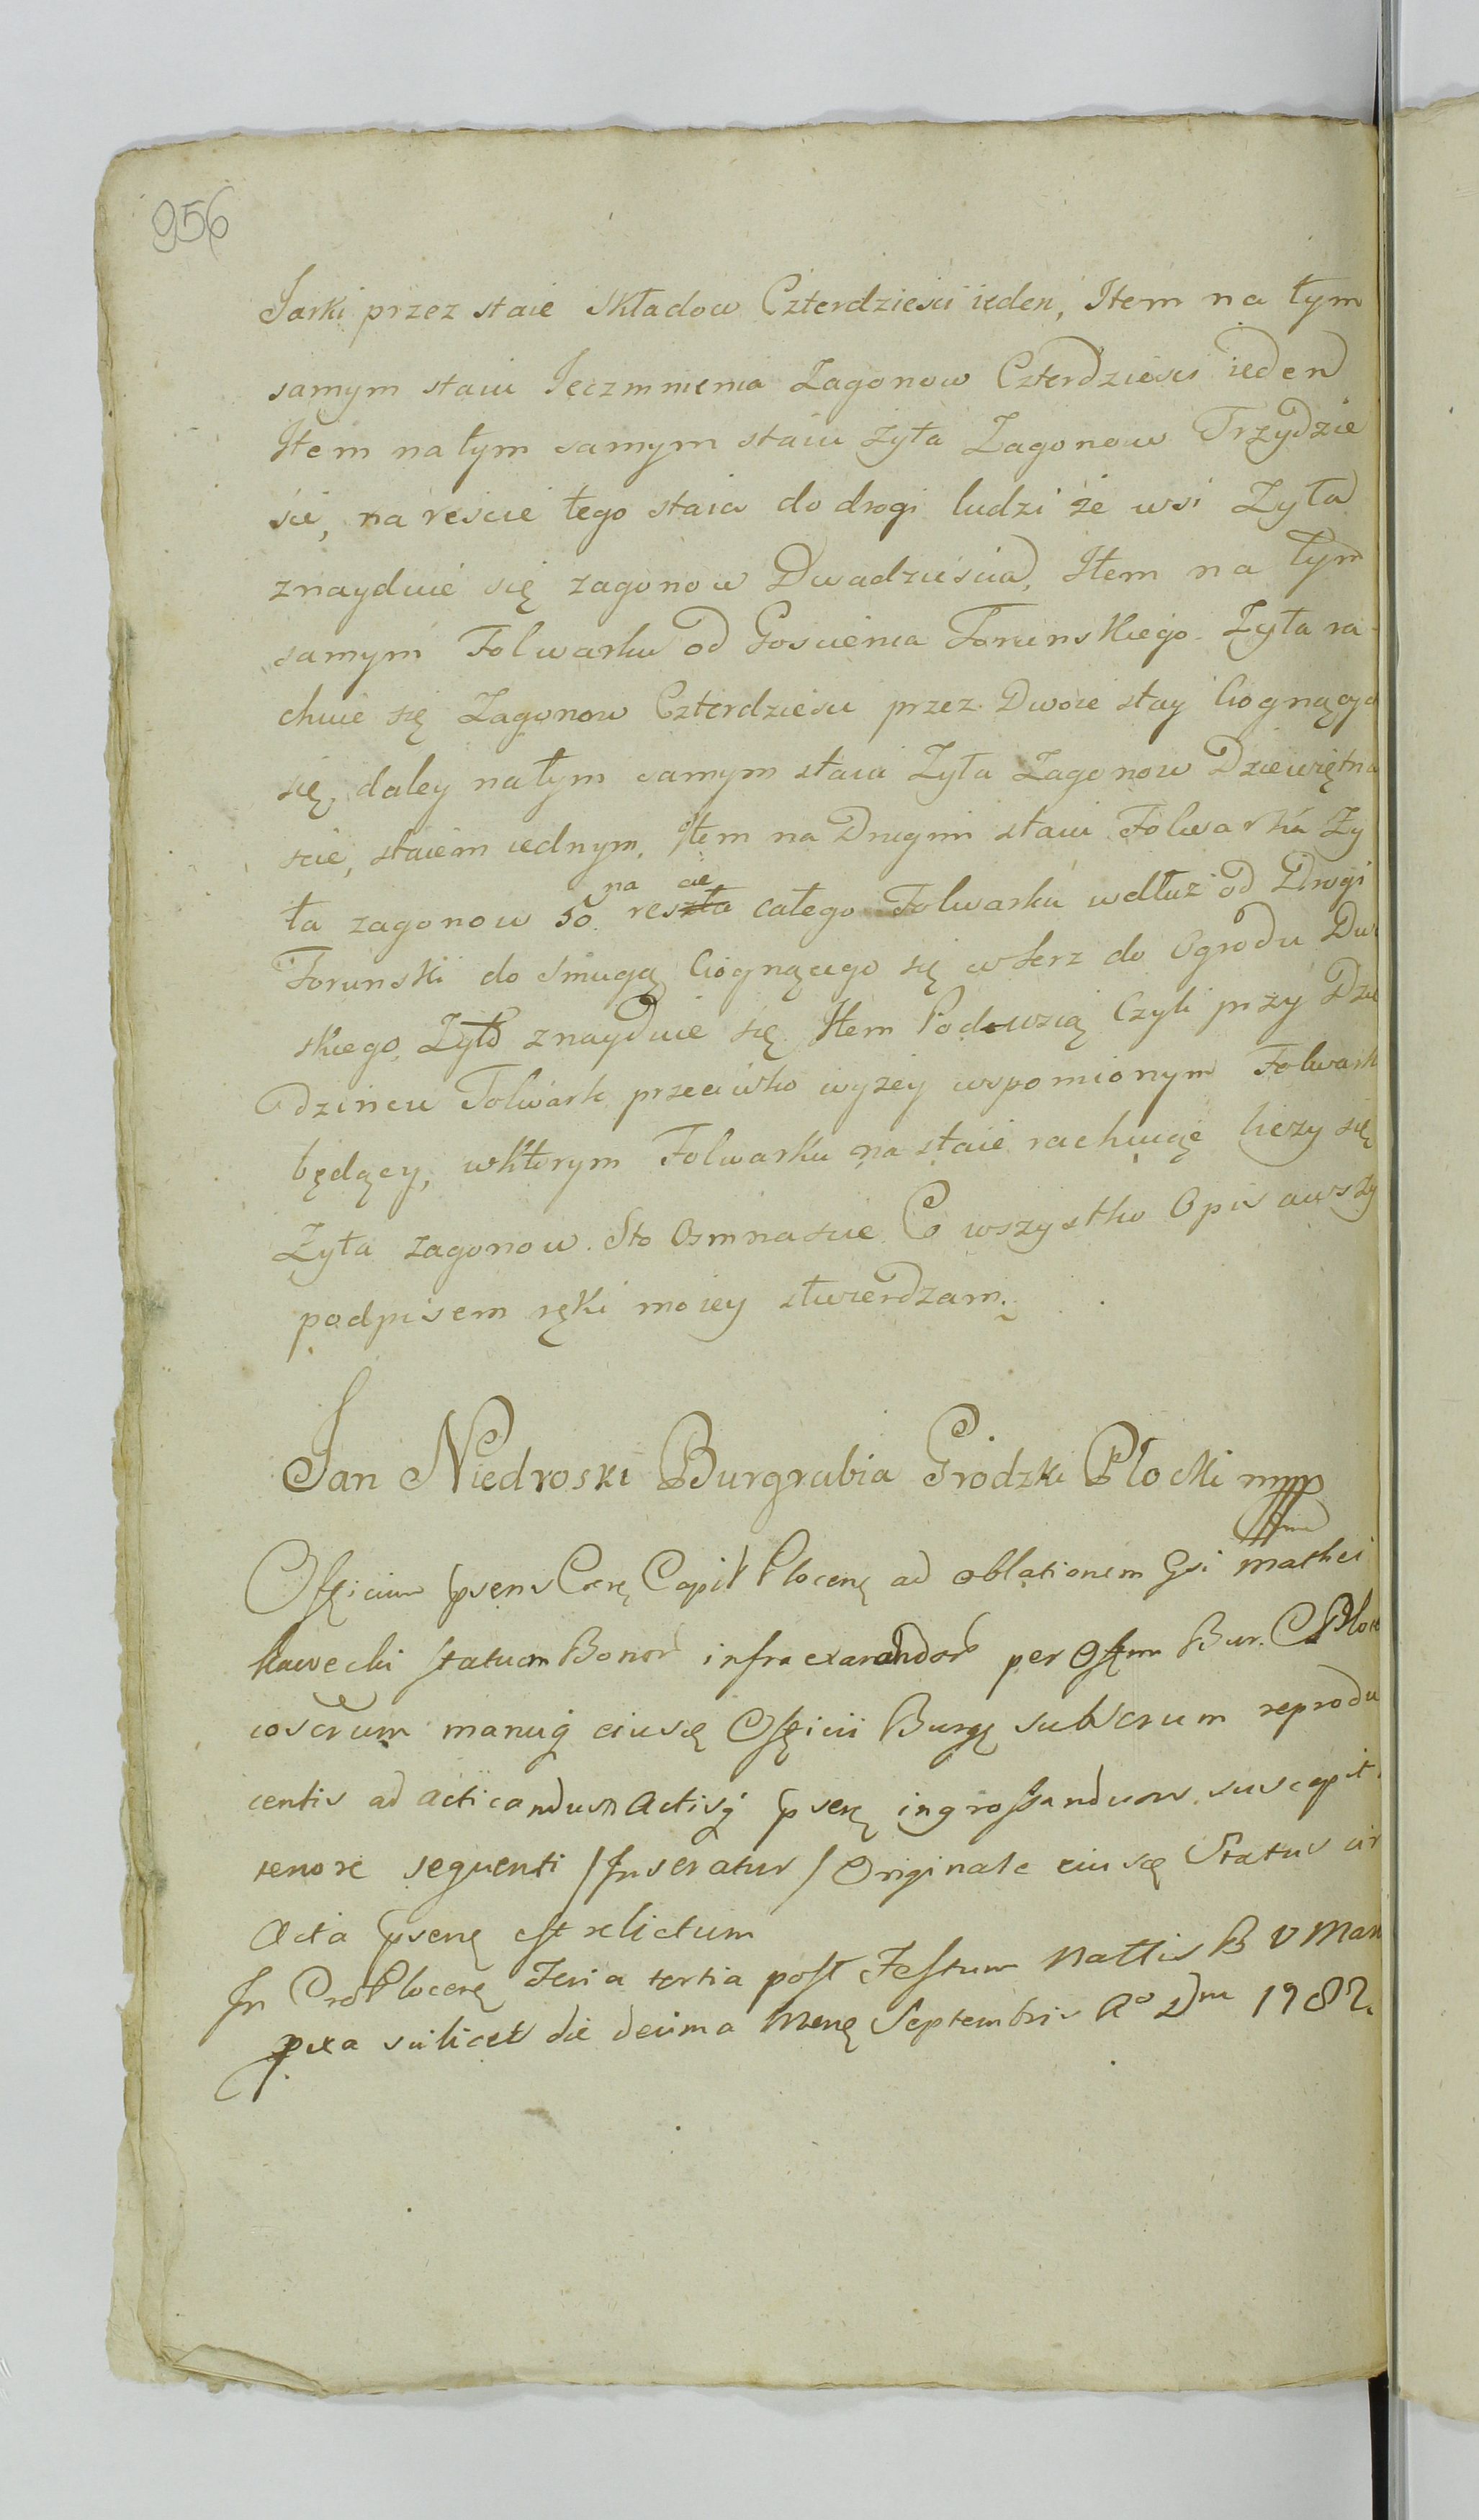 956
Jarki przez staie składow Czterdziesci ieden, Item na tym
samym staiu Jęczmnienia Zagonow Czterdziesci ieden
Item na tym samym staiu żyta Zagonow Trzydzie
sie, na reście tego staia do drogi ludzi że wsi Zyta
znayduie się zagonow Dwadzieścia, Item na tym
samym Folwarku od Goscienia Torunskiego Zyta ra-
chuie się Zagonow Czterdziesci przez Dwoie stay Ciognącego
się, daley na tym samym staiu Zyta Zagonow Dziewiętna
scie, staiem iednym. Item na Drugim staiu Folwarku Zy
na cie
ta zagonow 50. reszta całego Folwarku wdłuż od Drogi
Torunski do smugą Ciognącego się wserz do Ogrodu Dw
skiego, Zyto znayduie się Item Pod wsią Czyli przy Dzie
dzińcu Folwark przeciwko wyzey wspomionym Folwark
będący, wktorym Folwarku na staie rachuiąc liczy się
Zyta zagonow. Sto Osmnascie Co wszystko Opisawszy
podpisem ręki moiey stwierdzam.
Jan Niedroski Burgrabia Grodzki Płocki mpp
Officium psens Cap̃ Plocen̨ ad oblationem Gsi Mathei
Kawecki statum Bonor infraexarandor per Offm Bur. C Ploc
coscrum manuq̨ eiusę Officii Burg subscrum reprodu
centis ad acticandum Actisq̨ psen̨ ingrossandum suscepit
tenore sequenti / Inseratur / Originale eiusę Status cir
Acta psen̨ est relictum
In Cro Plocen̨ Feria tertia post Festum Nattis B V Mar
pxa scilicet die decima Men̨ Septembris Ao Dni 1782.